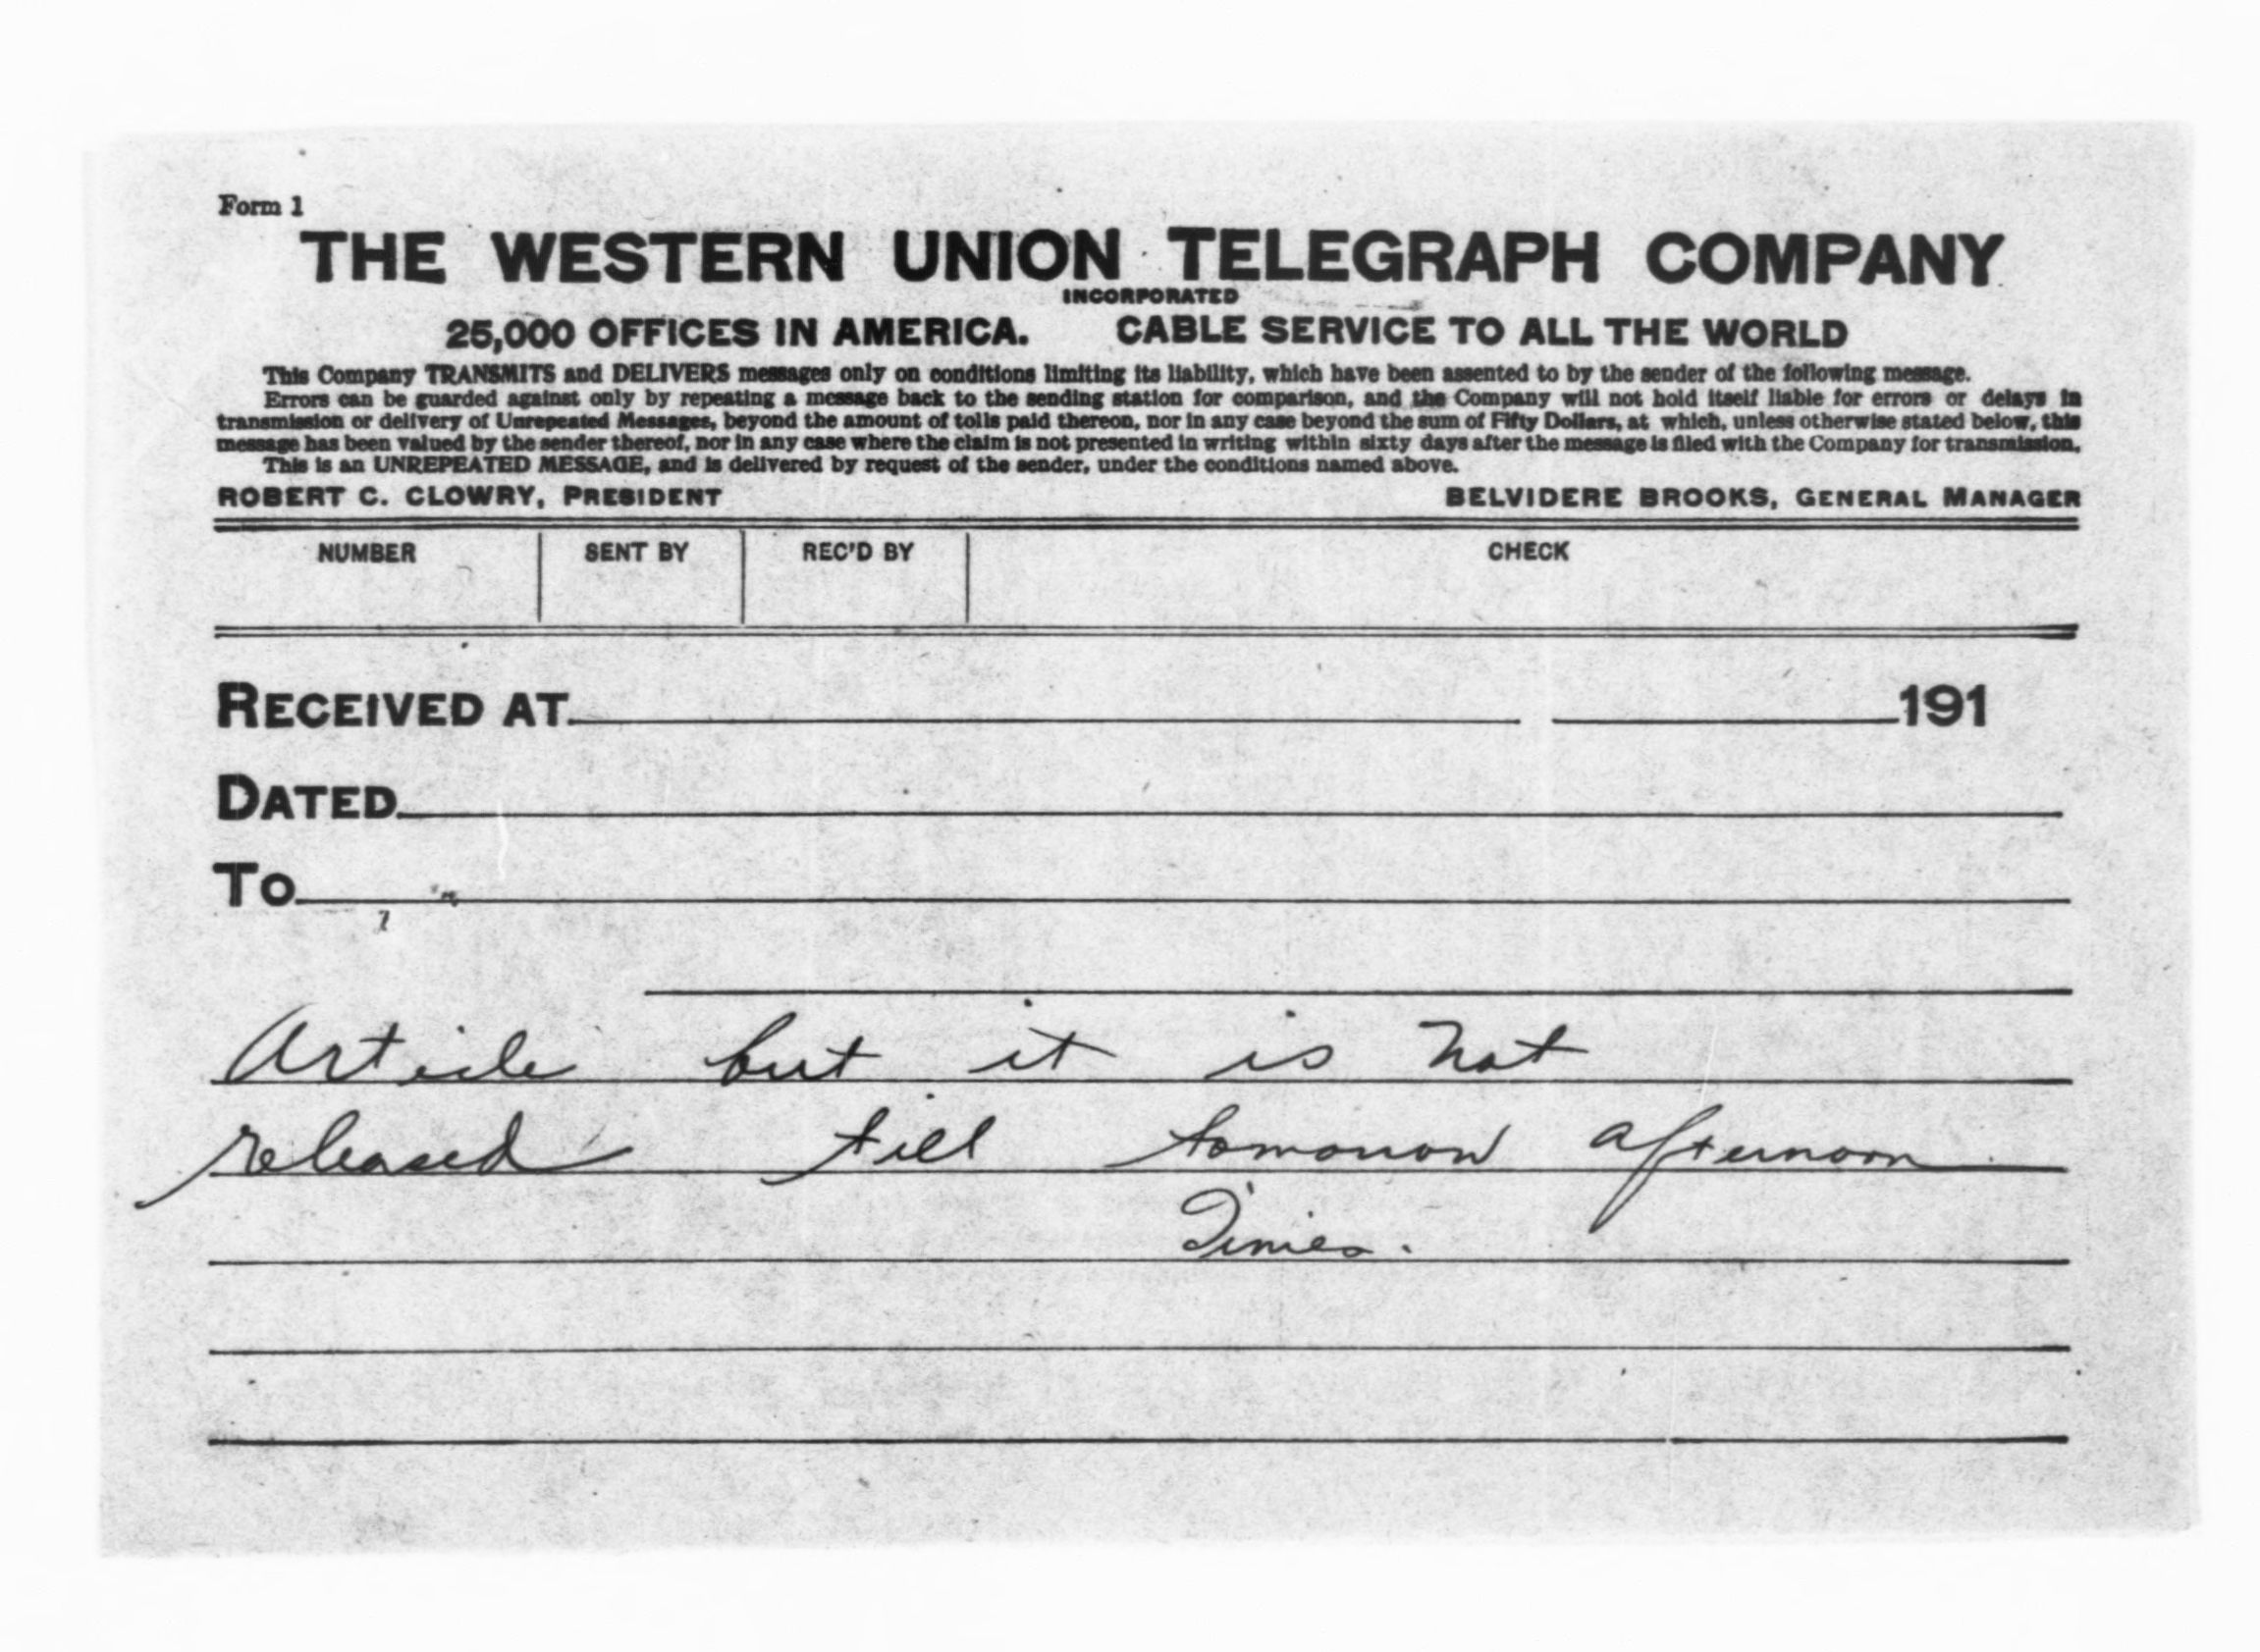 Form 1
THE WESTERN UNION TELEGRAPH COMPANY
INCORPORATED
25,000 OFFICES IN AMERICA. CABLE SERVICE TO ALL THE WORLD
This Company TRANSMITS and DELIVERS messages only on conditions limiting its liability, which have been assented to by the sender of the following message.
Errors can be guarded against only by repeating a message back to the sending station for comparison, and the Company will not hold itself liable for errors or delays in
transmission or delivery of Unrepeated Messages, beyond the amount of tolls paid thereon, nor in any case beyond the sum of Fifty Dollars, at which, unless otherwise stated below, this
message has been valued by the sender thereof, nor in any case where the claim is not presented in writing within sixty days after the message is filed with the Company for transmission.
This is an UNREPEATED MESSAGE, and is delivered by request of the sender, under the conditions named above.
ROBERT C. CLOWRY, PRESIDENT BELVIDERE BROOKS, GENERAL MANAGER
NUMBER SENT BY REC'D BY CHECK
RECEIVED AT 191
DATED
TO
Article but it is not
released till tomorrow afternoon
Times.